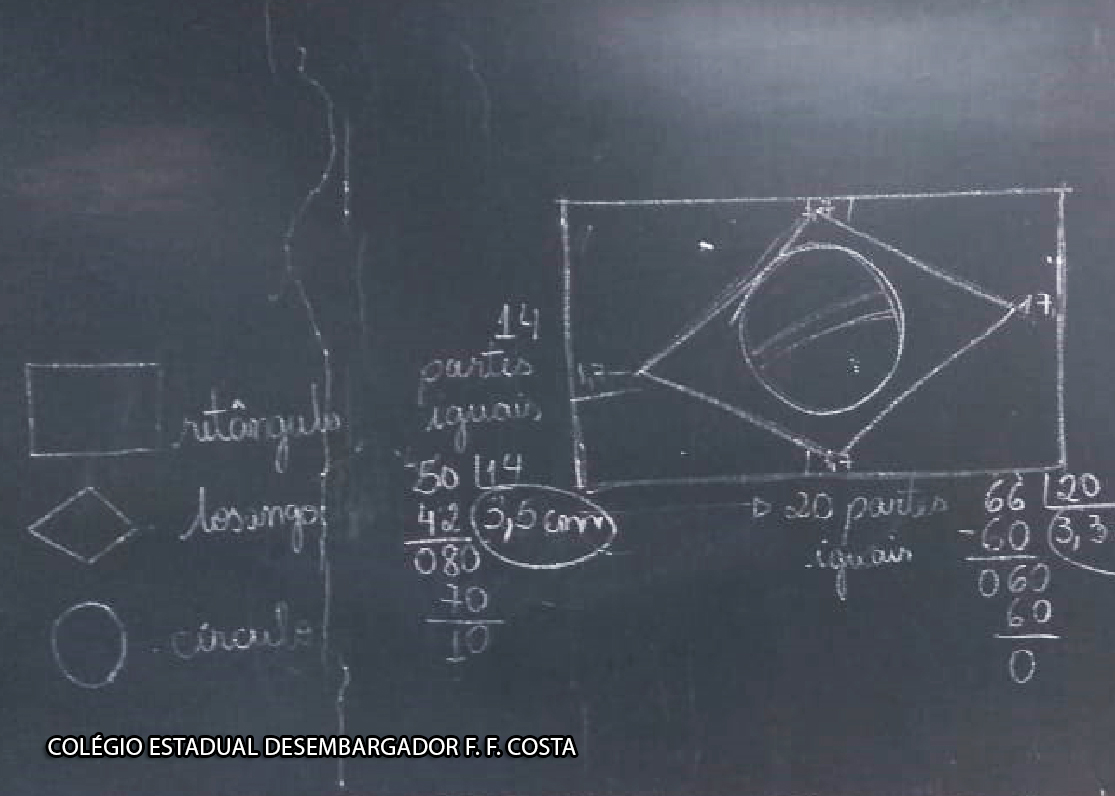 retângulo
losango
círculo
14
partes
iguais
50 | 14
42
3,5 cm
080
70
10
1,7
17
1,7
1,7
20 partes
iguais
66 | 20
-60
3,3
060
60
0
COLÉGIO ESTADUAL DESEMBARGADOR F. F. COSTA